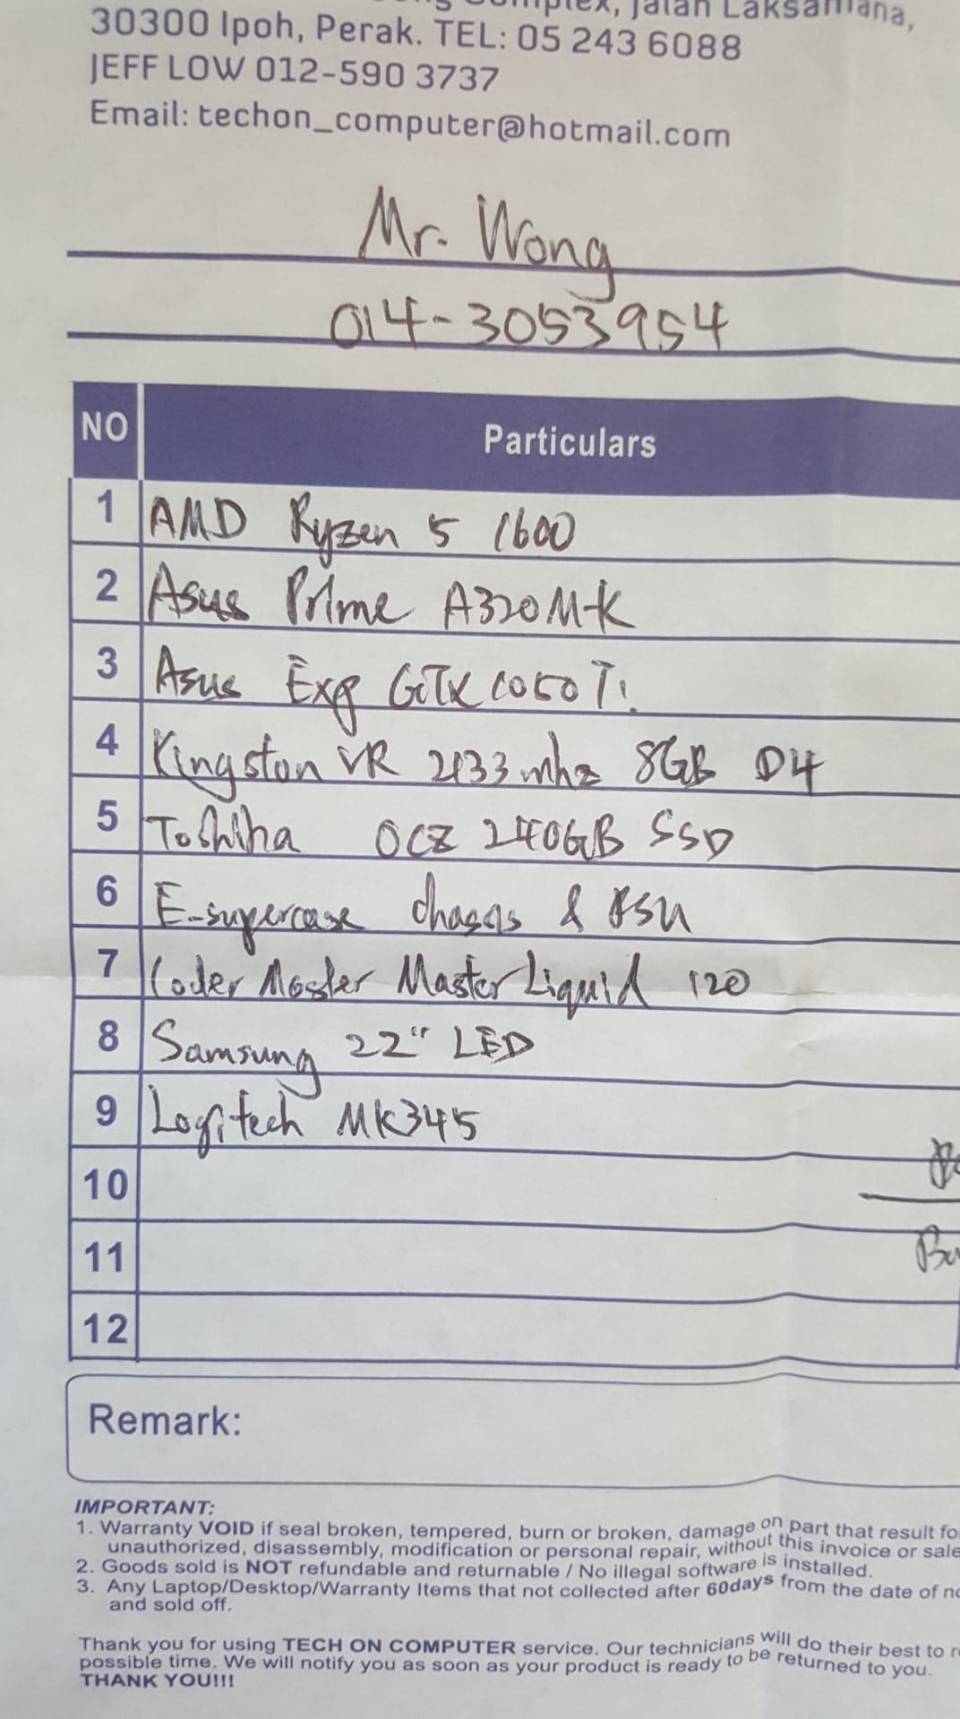 Complex, Jalan Laksamana,
30300 Ipoh, Perak. TEL: 05 243 6088
JEFF LOW 012-590 3737
Email: techon_computer@hotmail.com
Mr. Wong
014-3053954
NO Particulars
1 AMD Ryzen 5 1600
2 Asus Prime A320M-K
3 Asus Exp GTX 1050 Ti
4 Kingston VR 2133mhz 8GB D4
5 Toshiba OCZ 240GB SSD
6 E-supercase chassis & PSU
7 Coder Master MasterLiquid 120
8 Samsung 22" LED
9 Logitech MK345
10
11
12
Remark:
IMPORTANT:
1. Warranty VOID if seal broken, tempered, burn or broken, damage on part that result fo
unauthorized, disassembly, modification or personal repair, without this invoice or sale
2. Goods sold is NOT refundable and returnable / No illegal software is installed.
3. Any Laptop/Desktop/Warranty Items that not collected after 60days from the date of no
and sold off.
Thank you for using TECH ON COMPUTER service. Our technicians will do their best to re
possible time. We will notify you as soon as your product is ready to be returned to you.
THANK YOU!!!